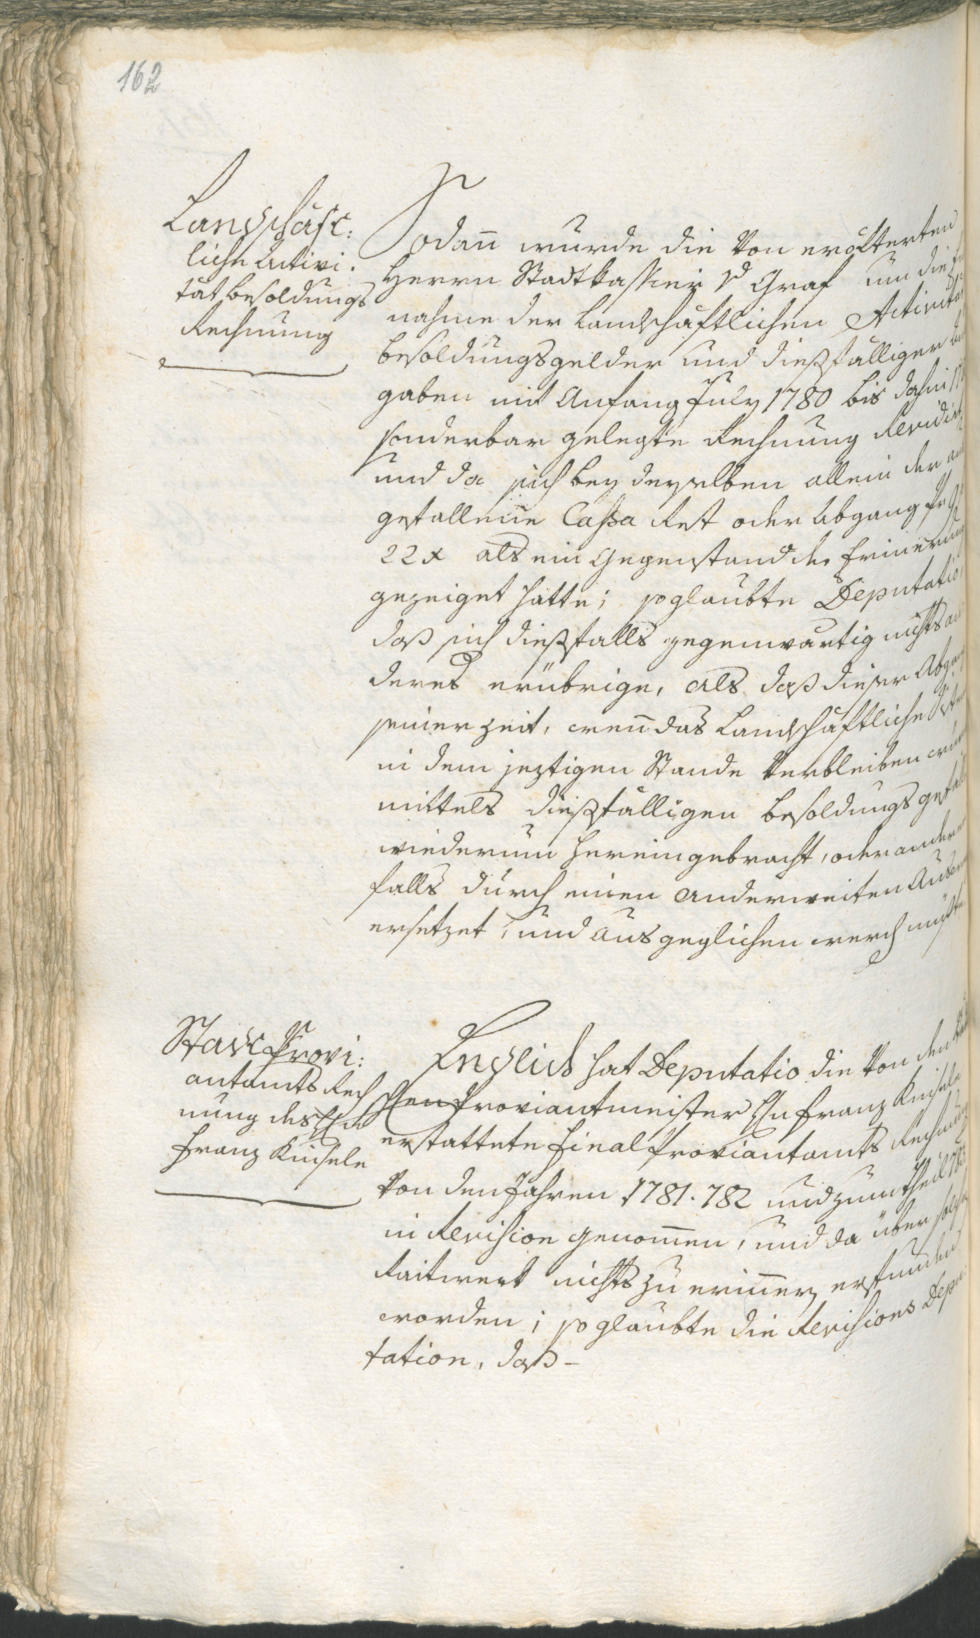 162
Landschäft:
liche Activi:
tät besoldungs
Rechnung
Sodann wurde die von erölterten
Herrn Stadtkassier v Graf um die
nahme der Landschaftlichen Activität
besoldungsgelder und dießfälliger
gaben mit Anfang July 1780 bis dahin
sonderbar gelegte Rechnung Revidirt
und da sich bey derselben allein der
gefallene Cassa Rest oder Abgang pr
22 x als ein Gegenstand der Erinerung
gezeiget hatte; so glaubte Deputatio,
daß sich dießfalls gegenwärtig nichts an
deres erübrige, als daß dieser Abgang
seiner Zeit, wenn das Landschäftliche
in dem jeztigen Stande verbleiben
mittels dießfälligen besoldungs
wiederum hereingebracht, oder andern
falls durch einen anderweiten
ersetzet, und ausgeglichen werden müste
Stadt Provi:
antamts Rech
nung des Hn
Franz Kuisele
Endlich hat Deputatio die von dem
schen Proviantmeister Hn Franz Kuisele
erstattete Final Proviantamts Rechnung
von den Jahren 1781. 782 und zum theil
in Revision genommen, und da über solche
Raitwerk nichts zu erinnern erfunden
worden; so glaubte die Revisions Depu
tation, daß -